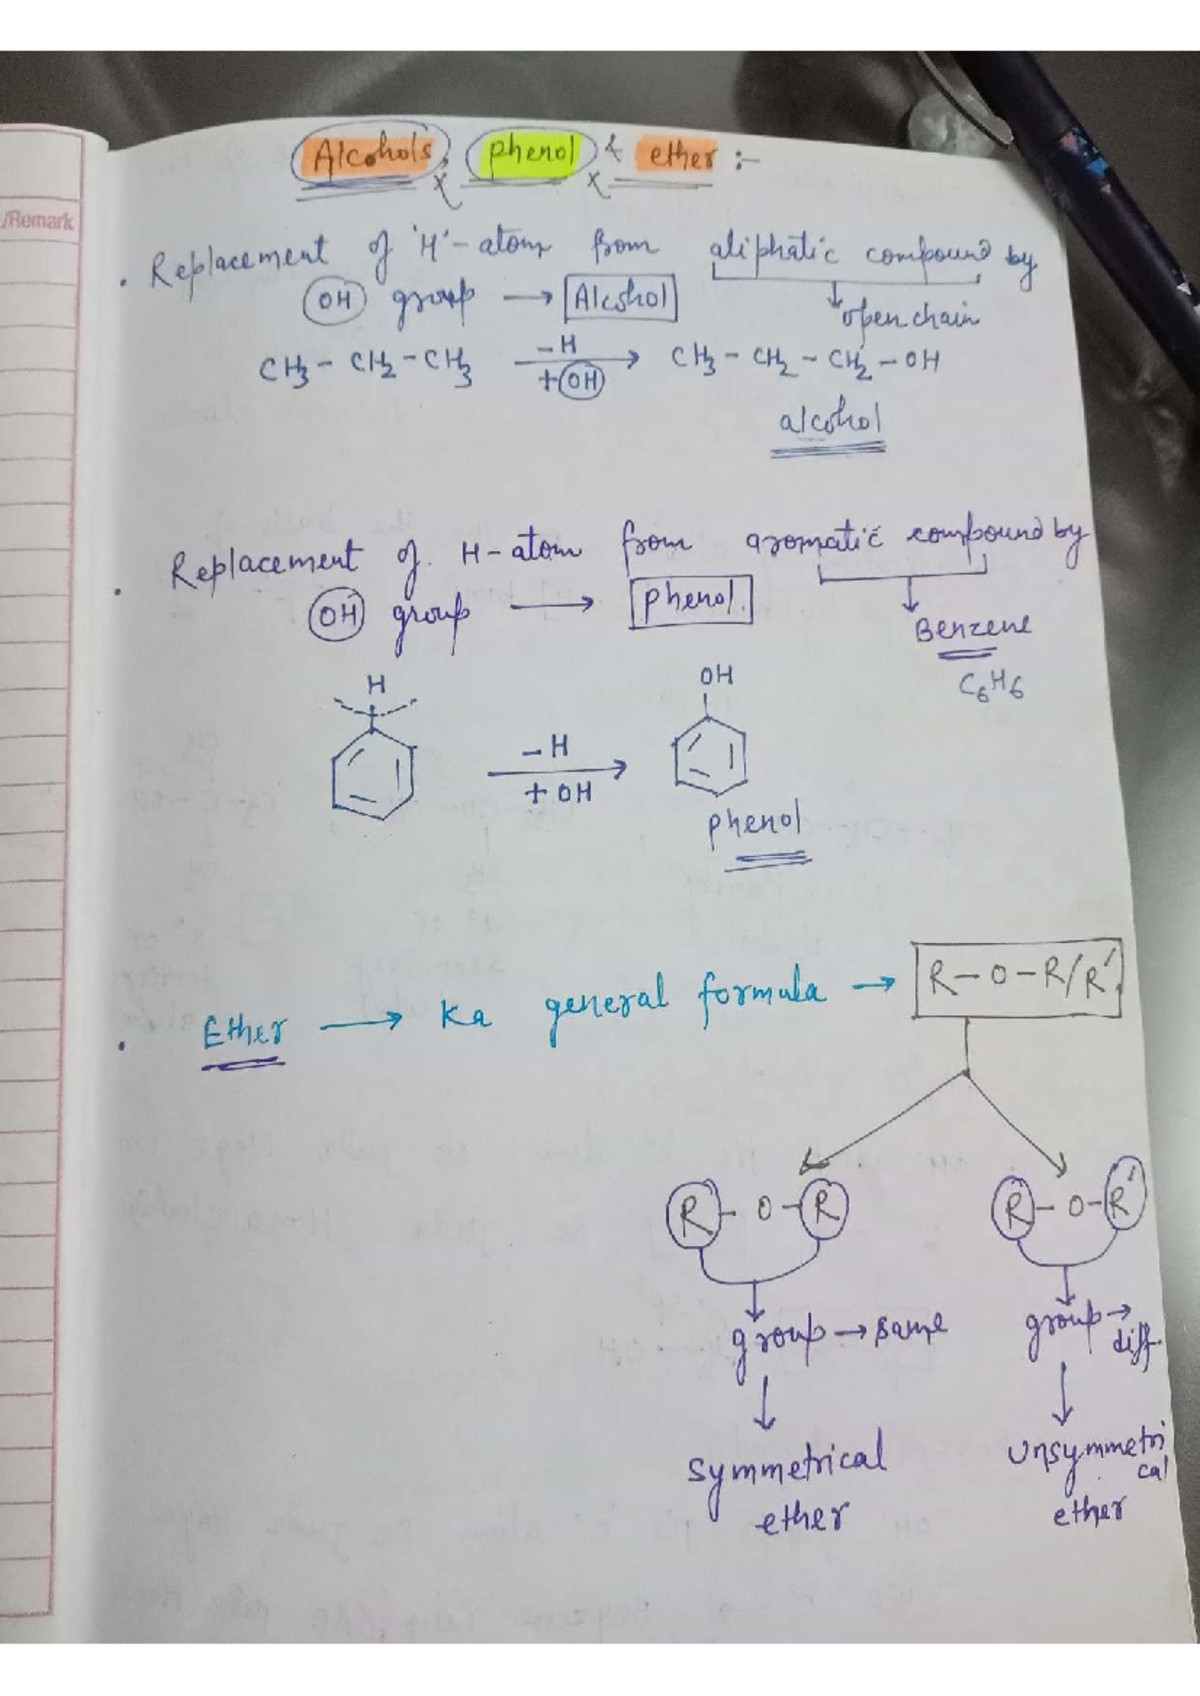 Alcohols, phenol & ether :-
/Remark
. Replacement of 'H'-atom from aliphatic compound by
OH group → Alcohol
open chain
CH3 - CH2 - CH3 -H +OH → CH3 - CH2 - CH2 - OH
alcohol
. Replacement of H-atom from aromatic compound by
OH group → Phenol.
Benzene
C6H6
H
OH
-H
+ OH
phenol
. Ether → Ka general formula → R-O-R/R'
R - O - R
R - O - R'
group → same
group → diff.
symmetrical
ether
Unsymmetri
cal
ether